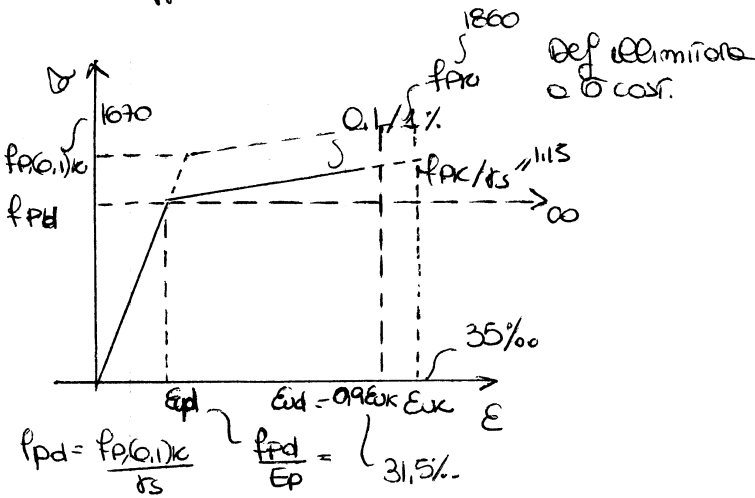 1860
Def illimitata
a σ cost.
σ
1670
fpk
0.1/1%
fp(0,1)k
fpk/γs
1.15
fpd
∞
35‰
εypd
εud = 0,9εuk
εuk
ε
fpd = fp(0,1)k / γs
fpd / Ep =
31,5‰